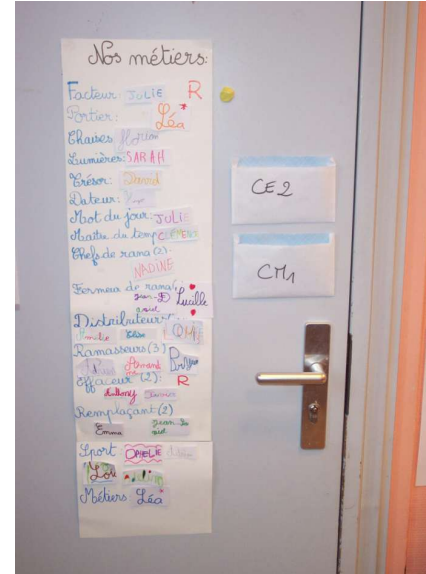 Nos métiers:
Facteur: JULIE R
Portier: Léa
Chaises
Lumières: SARAH
Trésor: David
Dateur:
Mot du jour: JULIE
Maître du temps CLÉMENT
Chefs de rang (2):
NADINE
Fermeur de rang
Jean-D Lucille
aniel
Distributeurs
Amélie Elise
Ramasseurs (3)
Armand
Effaceur (2): R
Anthony
Remplaçant (2)
Emma Jean-Da
niel
Sport OPHELIE
Lou
Métiers: Léa
CE2
CM1